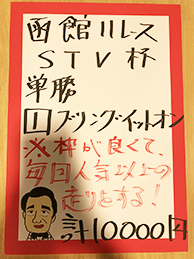 函館11レース
STV杯
単勝
1 ブリング・イットオン
※枠が良くて、
毎回人気以上の
走りをする!
計10000円